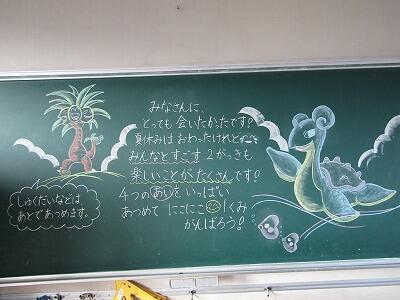 みなさんに、
とっても会いたかったです!
夏休みはおわったけれど
みんなとすごす2がっきも
楽しいことがたくさんです!
4つのあいをいっぱい
あつめてにこにこ1くみ
がんばろう!
しゅくだいなどは、
あとであつめます。